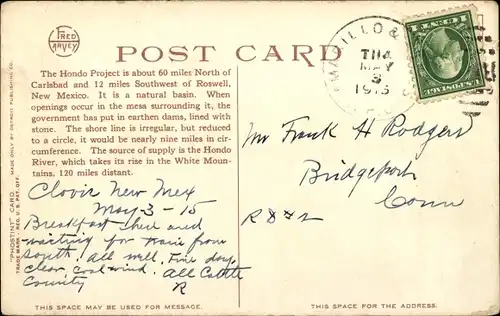 FRED HARVEY
POST CARD
The Hondo Project is about 60 miles North of
Carlsbad and 12 miles Southwest of Roswell,
New Mexico. It is a natural basin. When
openings occur in the mesa surrounding it, the
government has put in earthen dams, lined with
stone. The shore line is irregular, but reduced
to a circle, it would be nearly nine miles in cir-
cumference. The source of supply is the Hondo
River, which takes its rise in the White Moun-
tains, 120 miles distant.
"PHOSTINT" CARD. MADE ONLY BY DETROIT PUBLISHING CO.
TRADE MARK - REG. U.S. PAT. OFF.
Clovis New Mex
May-3-15
Breakfast here and
waiting for train from
South. All well. Fine day
clear, cool wind. All Cattle
Country
R
AMARILLO &
MAY
3
1915
Mr Frank H Rodgers
Bridgeport
Conn
THIS SPACE MAY BE USED FOR MESSAGE.
THIS SPACE IS FOR THE ADDRESS.